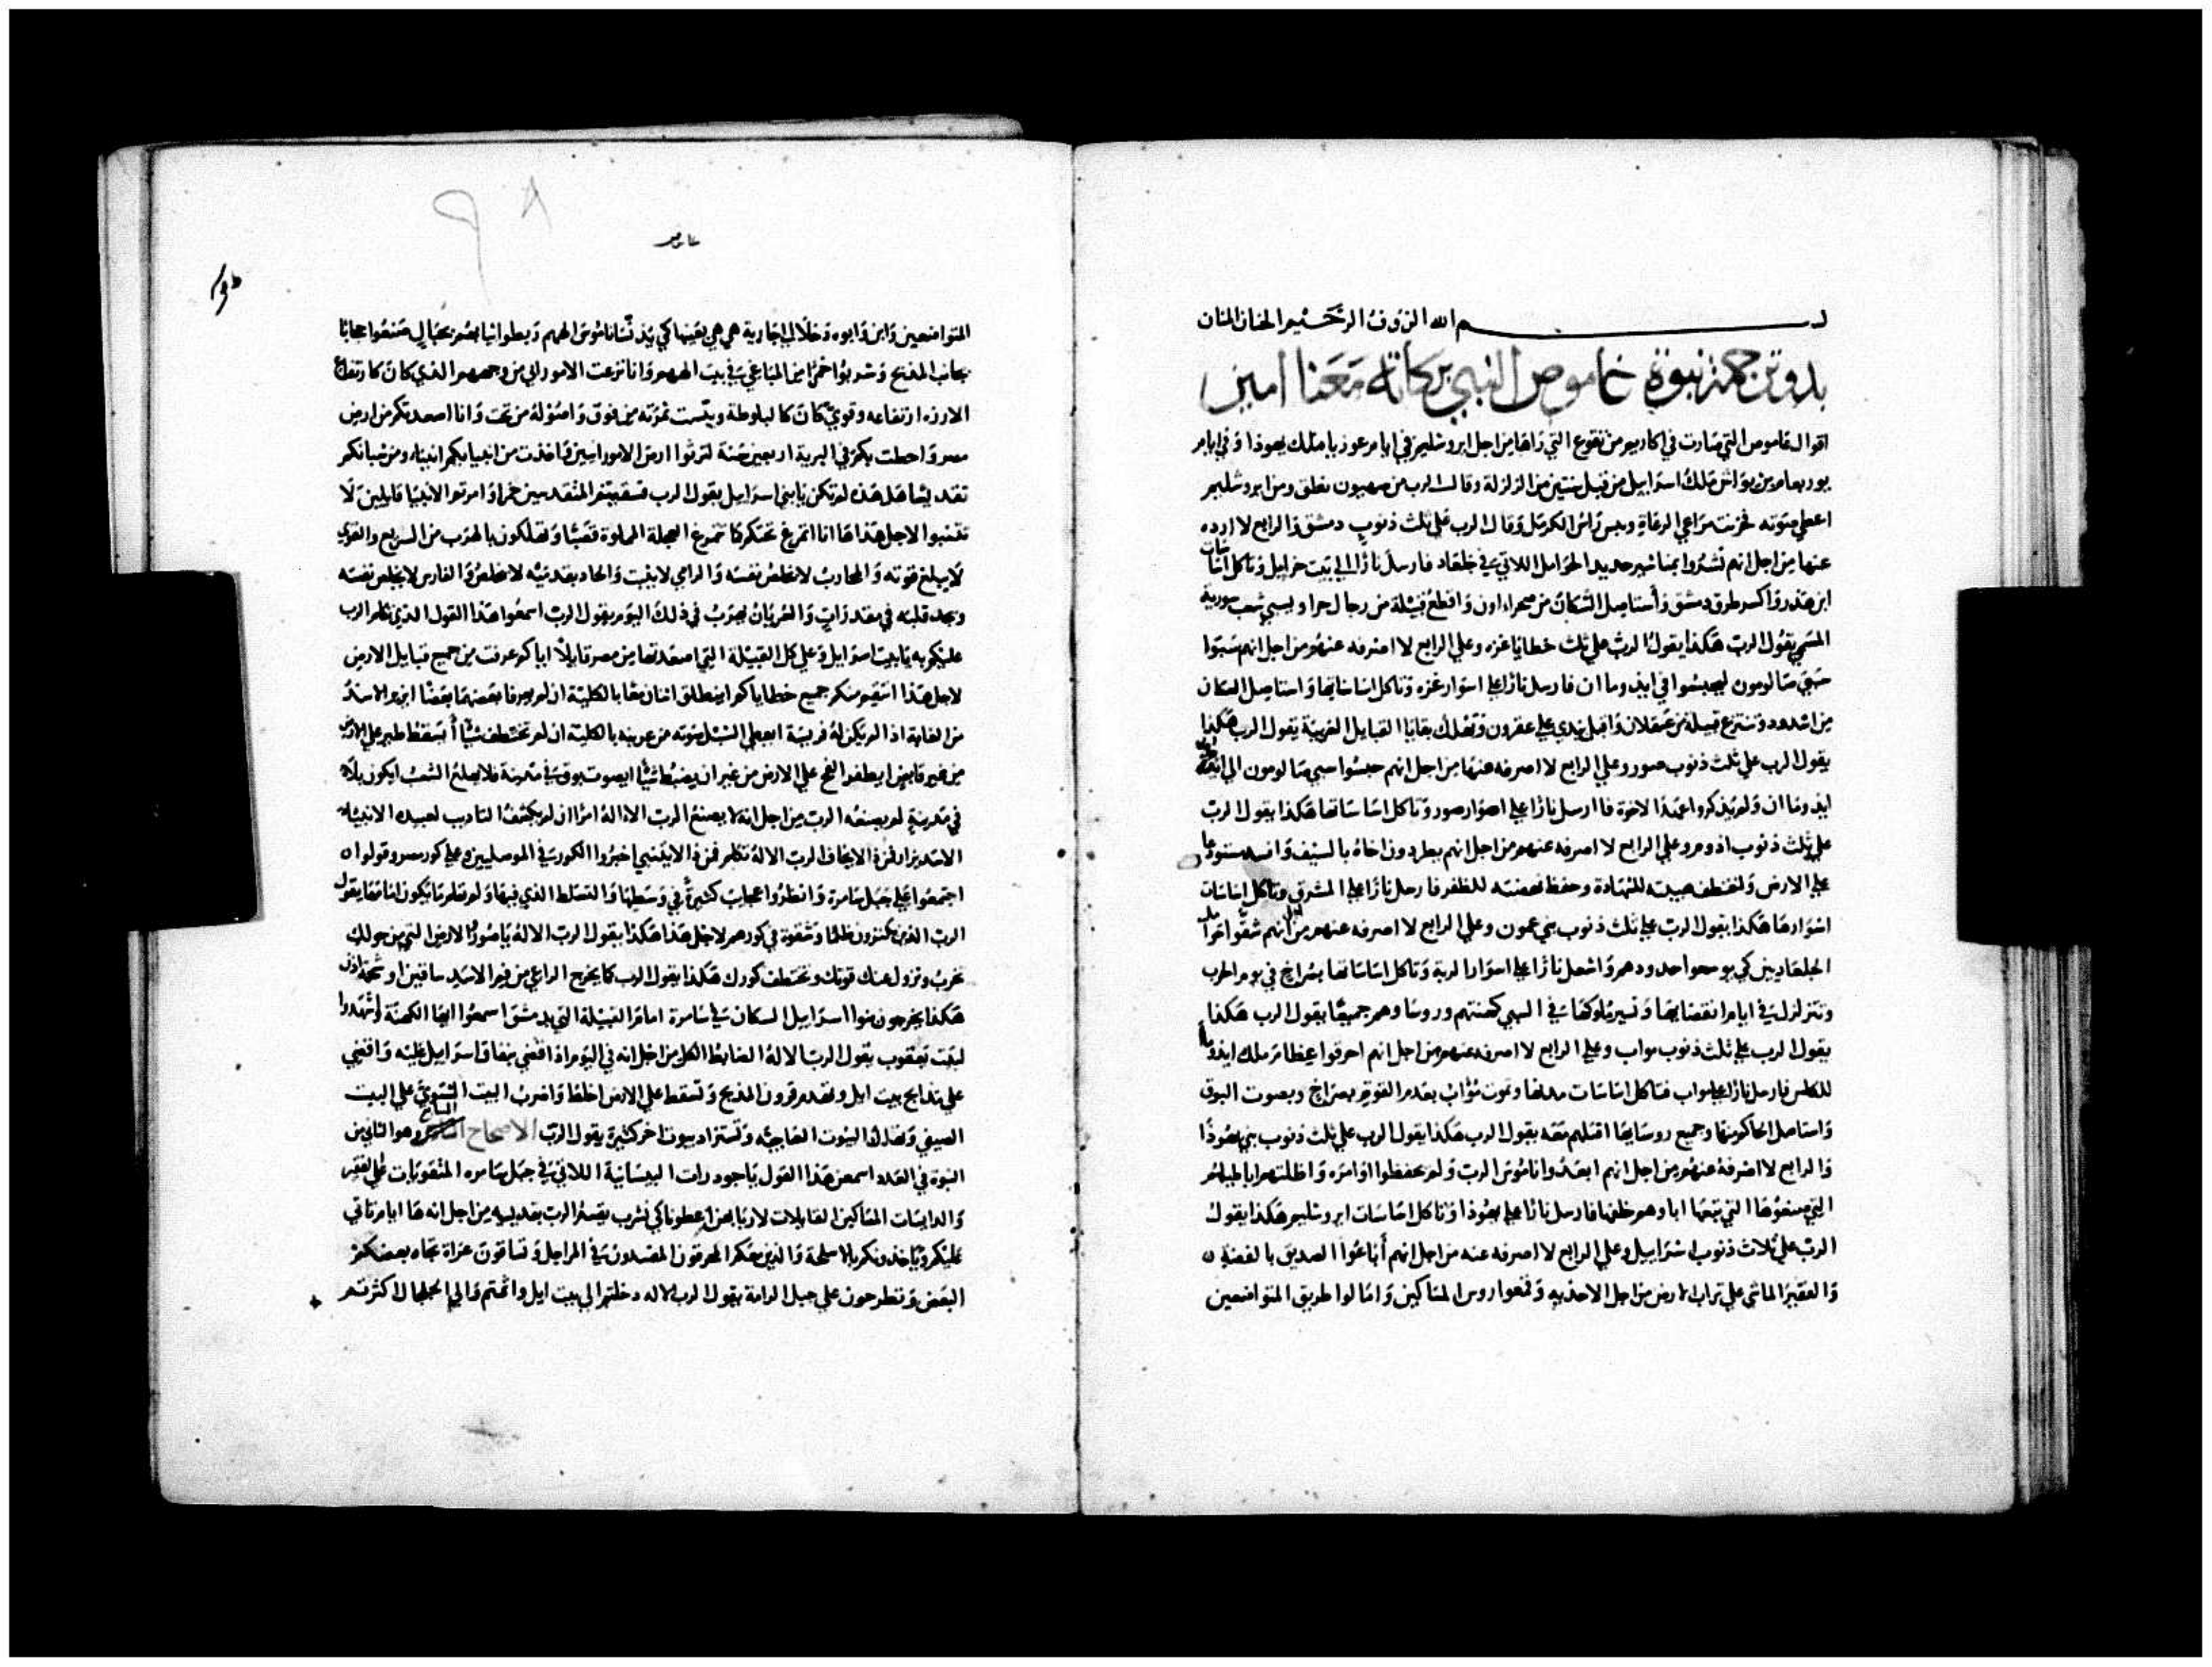 بسم الله الروف الرحيم الحنان المنان
بدو ترجمة نبوة عاموص النبي بركاته معنا امين
اقوال عاموص التي صارت في اكاريم من تقوع التي راها من اجل ايروشليم في ايام عوزيا ملك يهوذا وفي ايام
يوربعام بن يواش ملك اسراييل من قبل سنتين من الزلزلة وقال الرب من صهيون نطق ومن ايروشليم
اعطي صوته فحزنت مراعي الرعاة ويبس راس الكرمل وقال الرب علي ثلث ذنوب دمشق والرابع لا ارده
عنها من اجل انهم نشروا بمناشير حديد الحوامل اللاتي في جلعاد فارسل نارا الي بيت خزاييل وتاكل اساسات
ابن هدر واكسر طرق دمشق واستاصل السكان من صحراء اون واقطع قبيلة من رجال حرا ويسبي شعب سورية
المسمي يقول الرب هكذا يقول الرب علي ثلث خطايا غزه وعلي الرابع لا اصرفه عنهم من اجل انهم سبوا
سبي سالومون ليحبسوا في ايدوما ان فارسل نارا علي اسوار غزه وتاكل اساساتها واستاصل السكان
من اشدود وتنتزع قبيلة من عسقلان واجلب يدي علي عقرون وتهلك بقايا القبايل الغريبة يقول الرب هكذا
يقول الرب علي ثلث ذنوب صور وعلي الرابع لا اصرفه عنها من اجل انهم حبسوا سبي سالومون الي
ايدوما ان ولم يذكروا عهد الاخوة فارسل نارا علي اصوار صور وتاكل اساساتها هكذا يقول الرب
علي ثلث ذنوب ادوم وعلي الرابع لا اصرفه عنهم من اجل انهم يطردون اخاه بالسيف وافسد مستودعا
علي الارض واختطف هيبته للشهادة وحفظ نهضته للظفر فارسل نارا علي المشرق وتاكل اساسات
اسوارها هكذا يقول الرب علي ثلث ذنوب بني عمون وعلي الرابع لا اصرفه عنهم من اجل انهم شقوا حوامل
الجلعاديين كي يوسعوا حدودهم واشعل نارا علي اسوار الربة وتاكل اساساتها بصراخ في يوم الحرب
وتتزلزل في ايام انقضايها وتسير ملوكها في السبي كهنتهم وروسا وهم جميعا يقول الرب هكذا
يقول الرب علي ثلث ذنوب مواب وعلي الرابع لا اصرفه عنهم من اجل انهم احرقوا عظام ملك ايدوما
للكلس فارسل نارا علي مواب فتاكل اساسات مدنها وتموت مواب بعدم القوة بصراخ وبصوت البوق
واستاصل الحاكم منها وجميع روسايها اقتلهم معه يقول الرب هكذا يقول الرب علي ثلث ذنوب بني يهوذا
والرابع لا اصرفه عنهم من اجل انهم ابعدوا ناموس الرب ولم يحفظوا اوامره واظلتهم اباطيلهم
التي صنعوها التي تبعها اباوهم خلفها فارسل نارا علي يهوذا وتاكل اساسات ايروشليم هكذا يقول
الرب علي ثلاث ذنوب اسراييل وعلي الرابع لا اصرفه عنه من اجل انهم اباعوا الصديق بالفضة
والفقير الماشي علي تراب الارض من اجل الاحذيه وقمعوا روس المساكين وامالوا طريق المتواضعين
عاموص
المتواضعين وابن وابوه دخلا الي جارية هي هي بعينها كي يدنسا ناموس الههم وبطوا ثيابهم بحبال صنعوا حجابا
بجانب المذبح وشربوا خمرا من المباغي في بيت الههم وانا نزعت الاموراني من وجههم الذي كان كارتفاع
الارزه ارتفاعه وقوي كان كالبلوطة ويبست ثمرته من فوق واصوله من تحت وانا اصعدتكم من ارض
مصر واحطت بكم في البرية اربعين سنة لترثوا ارض الاموراسين واخذت من ابنايكم انبياء ومن شبانكم
تقديسا هل هذه لم تكن يا بني اسراييل يقول الرب فسقيتم المتقدسين خمرا وامرتم الانبيا قايلين لا
تتنبوا لاجل هذا ها انا اتمرغ تحتكم كما تتمرغ العجلة المملوة قصبا وتهلكون بالهرب من السريع والقوي
لا يبلغ قوته والمحارب لا يخلص نفسه والرامي لا يثبت والحاد بقدميه لا يخلص والفارس لا يخلص نفسه
ويجد قلبه في مقدرات والعريان يهرب في ذلك اليوم يقول الرب اسمعوا هذا القول الذي تكلم الرب
عليكم به يا بيت اسراييل وعلي كل القبيلة التي اصعدتها من مصر قايلا اياكم عرفت من جميع قبايل الارض
لاجل هذا انتقم منكم جميع خطاياكم اينطلق اثنان معا بالكلية ان لم يعرفا بعضهما بعضا ايزير الاسد
من الغابة اذا لم يكن له فريسة ايعطي الشبل صوته من عرينه بالكلية ان لم يختطف شيا أيسقط طير علي الارض
من غير قابض ايطفر الفخ علي الارض من غير ان يضبط شيا ايصوت ببوق في مدينة فلا يهلع الشعب ايكون بلاء
في مدينة لم يصنعه الرب من اجل انه لا يصنع الرب الاله امرا ان لم يكشف التاديب لعبيده الانبياء
الاسد يزار فمن ذا لا يخاف الرب الاله تكلم فمن ذا لا يتنبي اخبروا الكور في الموصليين وعلي كور مصر وقولوا
اجتمعوا علي جبل سامرة وانظروا عجايب كثيرة في وسطها والتسلط الذي فيها ولم تعلم ما يكون امامها يقول
الرب الذين يكنزون ظلما وشقوة في كورهم لاجل هذا هكذا يقول الرب الاله يا صور الارض التي من حولك
تخرب وتزول عنك قوتك وتختطف كورك هكذا يقول الرب كما يخرج الراعي من فم الاسد ساقين او شحمة اذن
هكذا يخرجون بنوا اسراييل السكان في سامرة امام القبيلة التي بدمشق اسمعوا ايها الكهنة واشهدوا
لبيت يعقوب يقول الرب الاله الضابط الكل من اجل انه في اليوم اذا اقضي بنفاق اسراييل عليه واقضي
علي مذابح بيت ايل وتهدم قرون المذبح وتسقط علي الارض اخلط واضرب البيت الشتوي علي البيت
الصيفي وتهلك البيوت العاجيه وتستزاد بيوت اخر كثيرة يقول الرب الاصحاح السابع وهو الثاني من
النبوة في العدد اسمعن هذا القول يا جودرات البيسانية اللاتي في جبل سامره المتقويات علي الفقير
والدايسات المساكين القايلات لاربابهن اعطونا كي نشرب يقسم الرب بقديسيه من اجل انه ها ايام تاتي
عليكم وياخذونكم بالاسلحة والذين معكم المحرقون المفسدون في المراجل وتساقون عراة تجاه بعضكم
البعض وتطرحون علي جبل الرامة يقول الرب الاله دخلتم الي بيت ايل واثمتم والي الجلجال اكثرتم